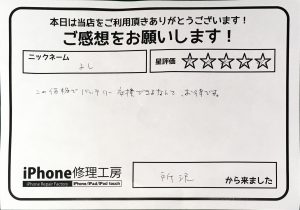 本日は当店をご利用頂きありがとうございます!
ご感想をお願いします!
ニックネーム
よし
星評価 ☆☆☆☆☆
この価格でバッテリー交換できるなんてお得です。
iPhone修理工房
iPhone Repair Factory iPhone/iPad/iPod touch
所沢 から来ました